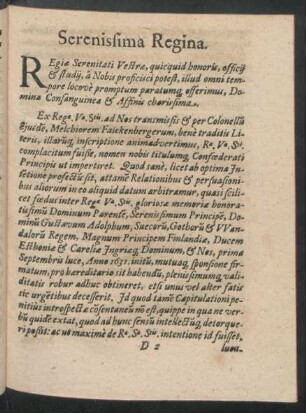 Serenissima Regina.
REgiæ Serenitati Vestræ, quicquid honoris, officij
& studij, à Nobis proficisci potest, illud omni tem-
pore locovè promptum paratumq́ offerimus, Do-
minæ Consanguineæ & Affini charissimæ.
Ex Regæ. Væ. Stis. ad Nos transmissis & per Colonellũ
Ejusdẽ, Melchiorem Faickenbergerum, benè traditis Li-
teris, illarũq́ inscriptione animadvertimus, Ræ. Væ. Sti.
complacitum fuisse, nomen nobis titulumq́ Confœderati
Principis ut impertiret. Quod sanè, licet ab optima In-
tetione profectũ sit, attamẽ Relationibus & persuasioni-
bus aliorum in eo aliquid datum arbitramur, quasi scili-
cet fœdus inter Regæ. Væ. Stis. gloriosæ memoriæ honora-
tissimũ Dominum Parentẽ, Serenissimum Principẽ, Do-
minũ Gustavum Adolphum, Suecorũ, Gothorũ & VVan-
dalorũ Regem, Magnum Principem Finlandiæ, Ducem
Esthoniæ & Careliæ Ingriæq́ Dominum, & Nos, prima
Septembris luce, Anno 1631. initũ, mutuaq́ sponsione fir-
matum, pro hæreditario sit habendũ, plenissimumq́ vali-
ditatis robur adhuc obtineret, etsi unus vel alter fatis
sic urgẽtibus decesserit. Id quod tamẽ Capitulationi pe-
nitiùs introspectæ cõsentaneũ nõ est, quippe in qua ne ver-
bũ quidẽ extat, quod ad hunc sensũ intellectũq́ detorque-
ri possit: ac uti maximè de Ræ. Væ. Stis. intentione id fuisset,
D 2